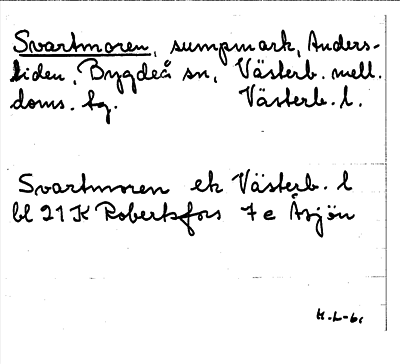 Svartmoren, sumpmark, Anders-
liden, Bygdeå sn, Västerb. mell.
doms. tg. Västerb. l.
Svartmoren ek Västerb. l
bl 21 K Robertsfors 7 e Åsjön